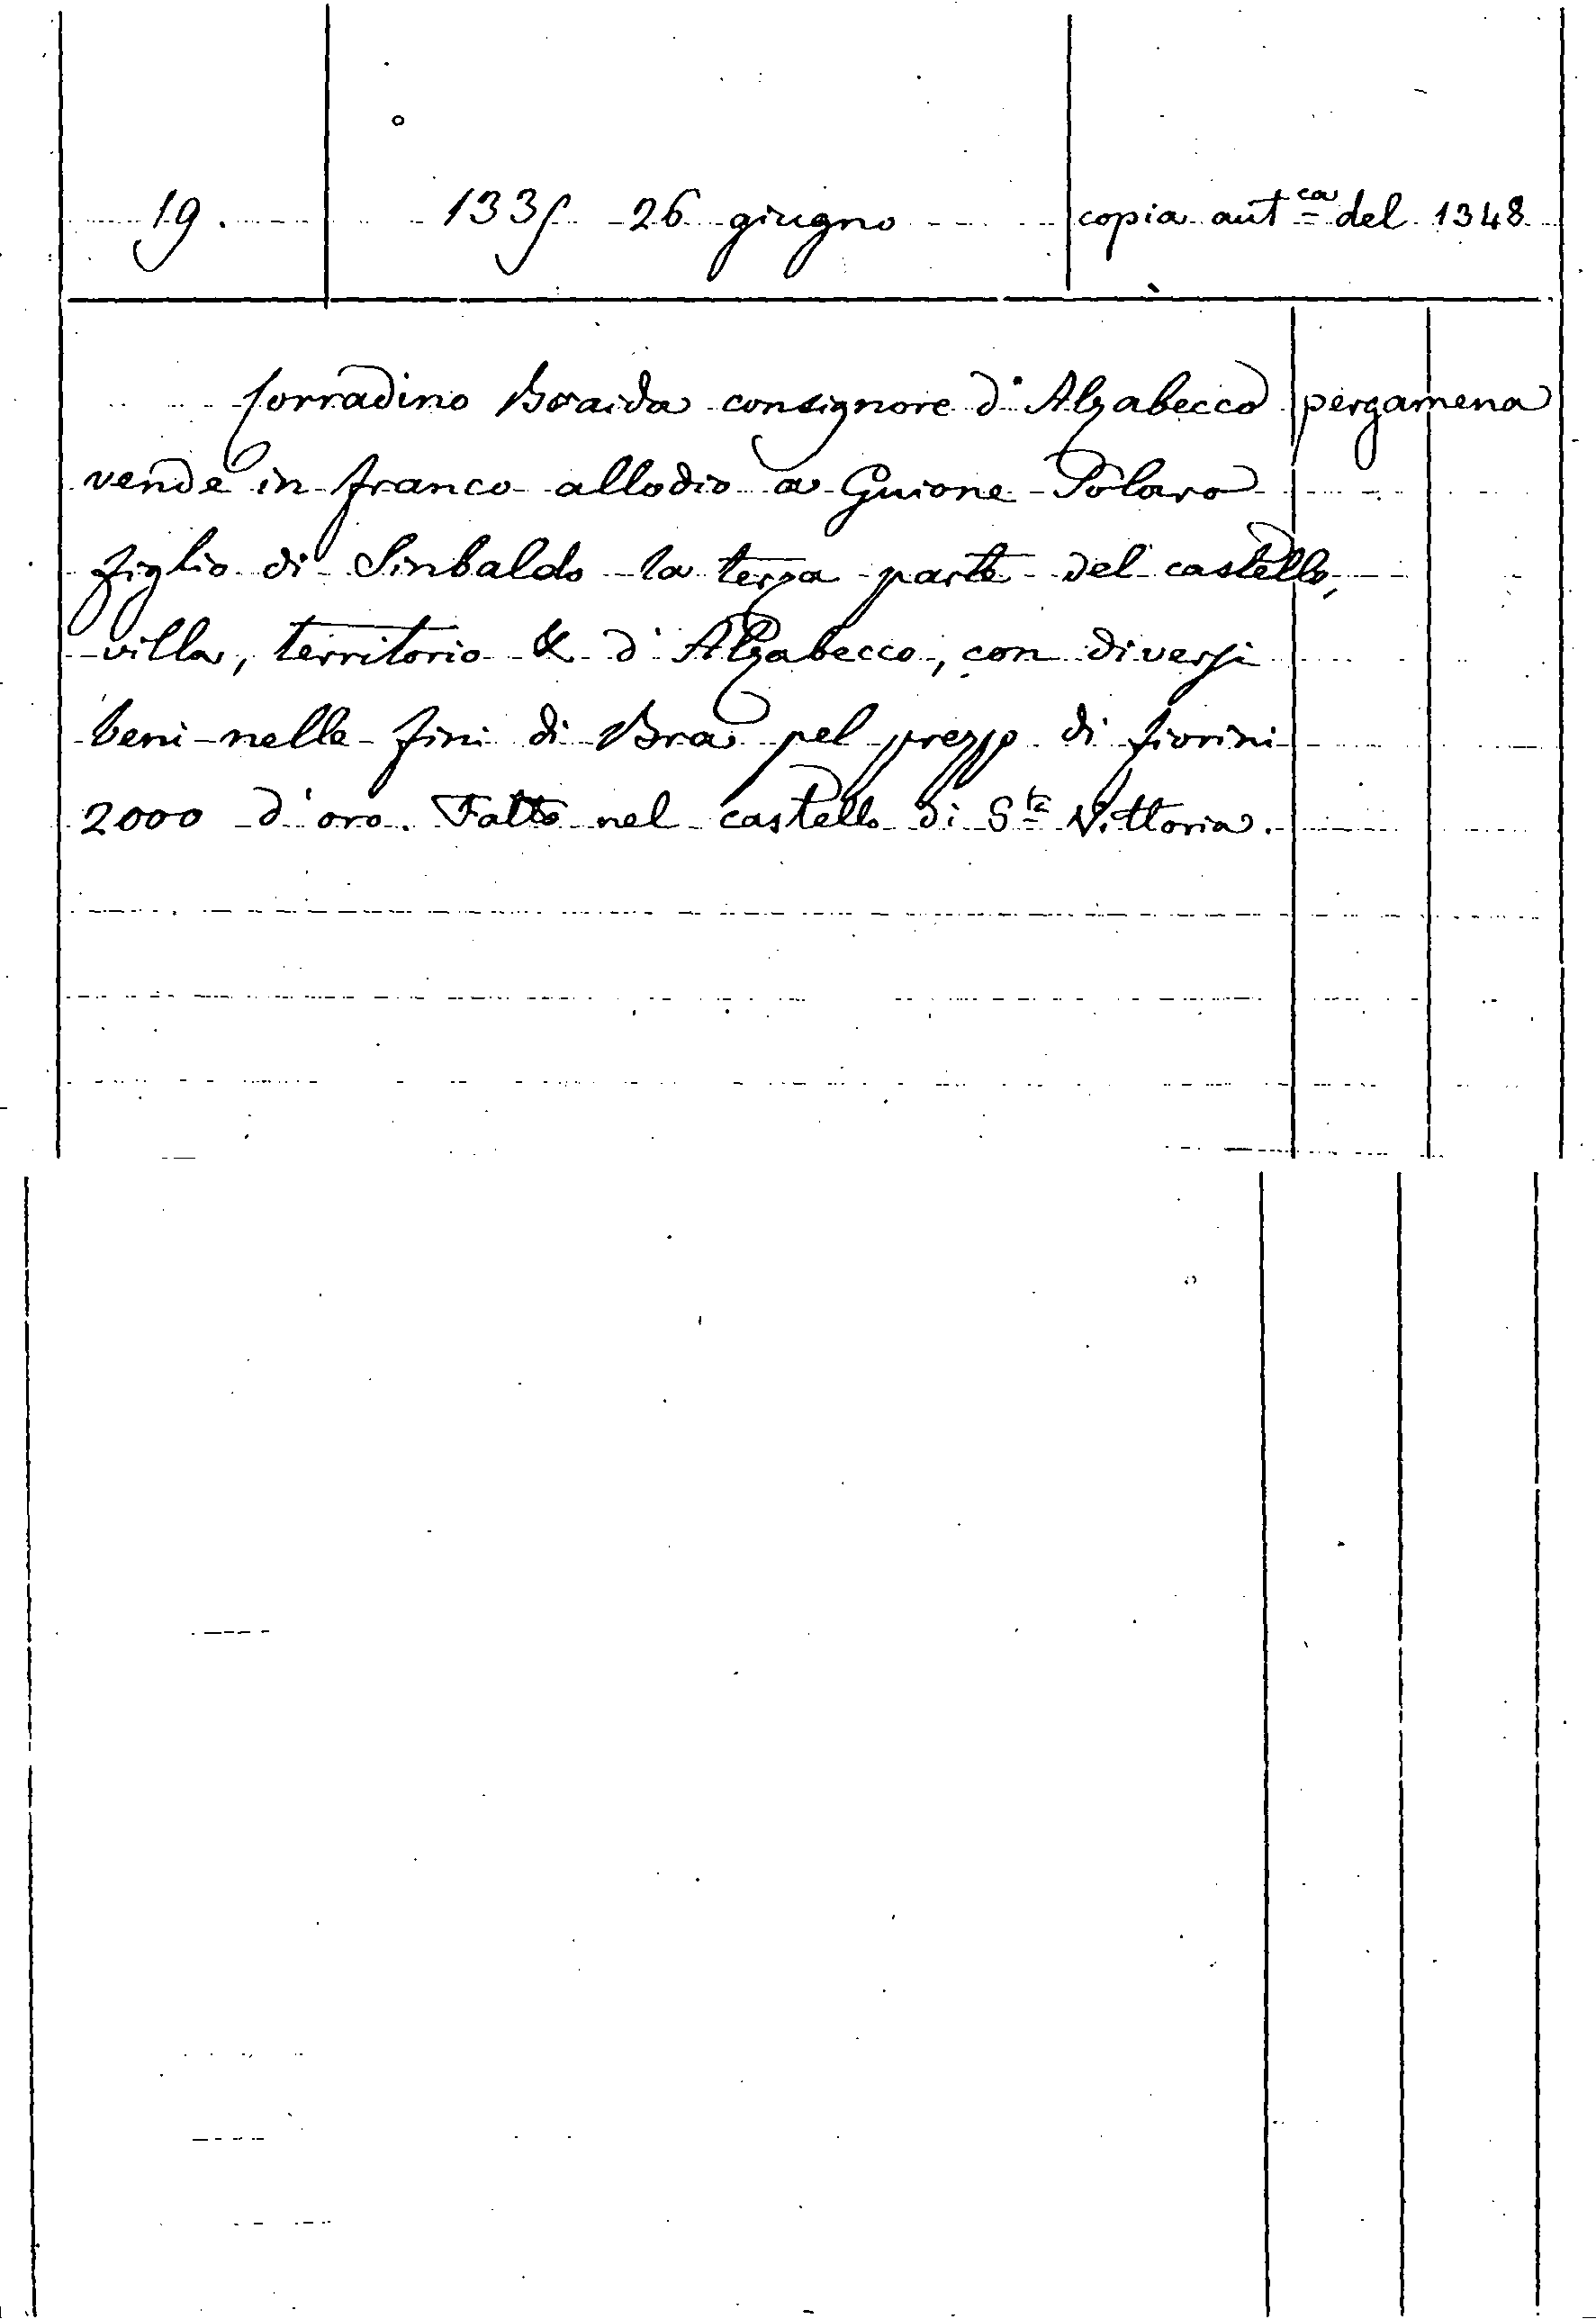 19. 1335 26 giugno copia aut.ca del 1348
Corradino Braida consignore d'Alzabecco pergamena
vende in franco allodio a Guione Solaro
figlio di Sinbaldo la terza parte del castello,
villa, territorio & d'Alzabecco, con diversi
beni nelle fini di Bra pel prezzo di fiorini
2000 d'oro. Fatto nel castello di S.ta Vittoria.